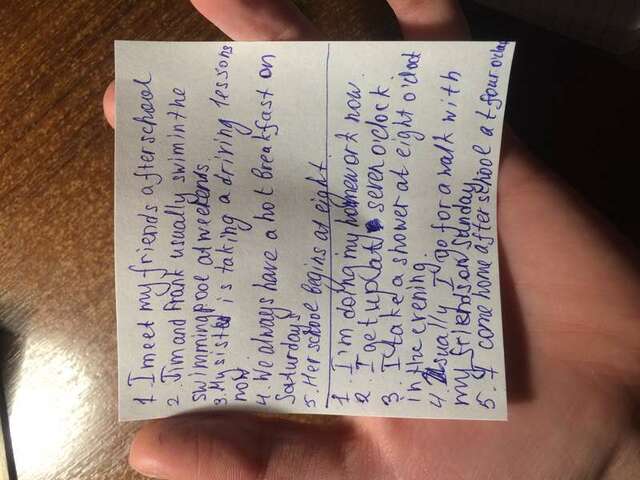 1 I meet my friends after school
2. Jim and Frank usually swim in the
swimmingpool at weekends
3. My sister is taking a driving lessons
now.
4. We always have a hot breakfast on
Saturdays
5. Her school begins at eight
1. I'm doing my homework now.
2. I get up at seven o'clock.
3 I take a shower at eight o'clock
in the evening.
4 Usually I go for a walk with
my friends on sunday
5. I come home after school at four o'clock